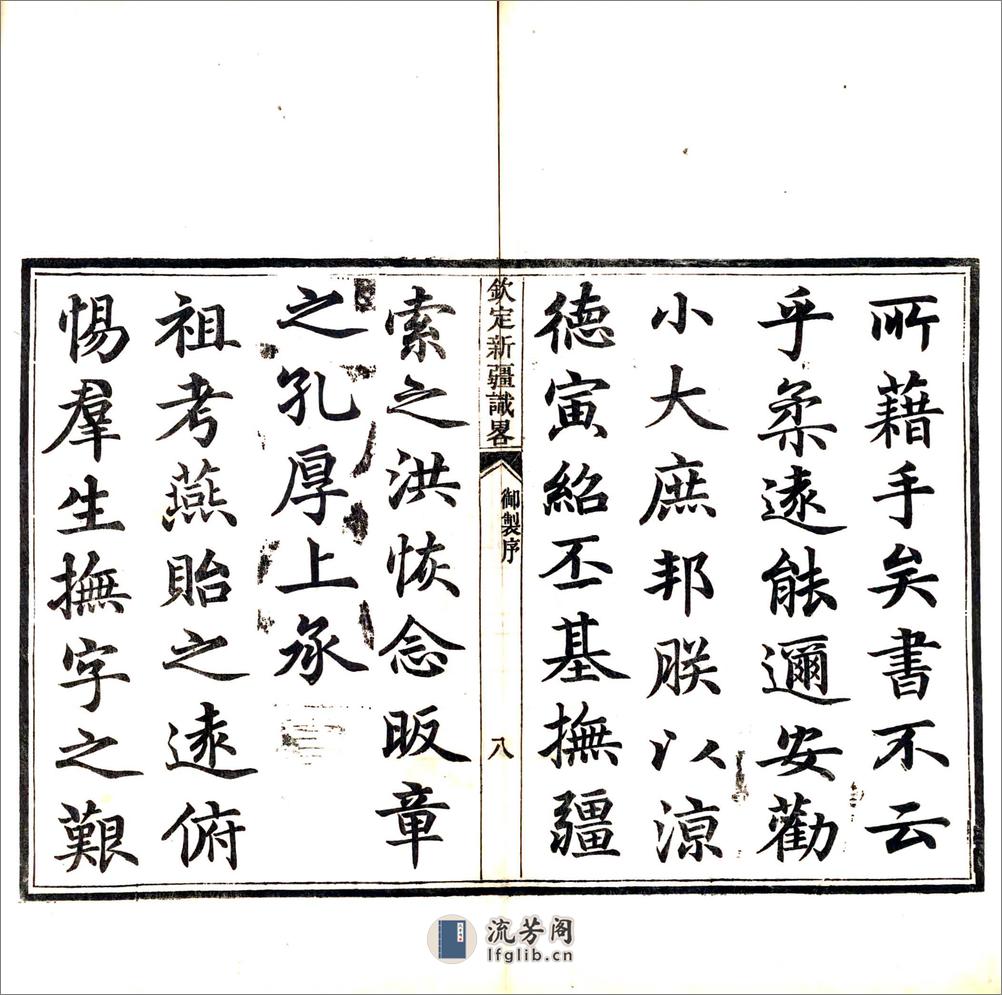 所藉手矣書不云
乎柔遠能邇安勸
小大庶邦朕以涼
德寅紹丕基撫疆
欽定新疆識畧
御製序
八
索之洪恢念昄章
之孔厚上承
祖考燕貽之遠俯
惕羣生撫字之艱
流芳阁
lfglib.cn